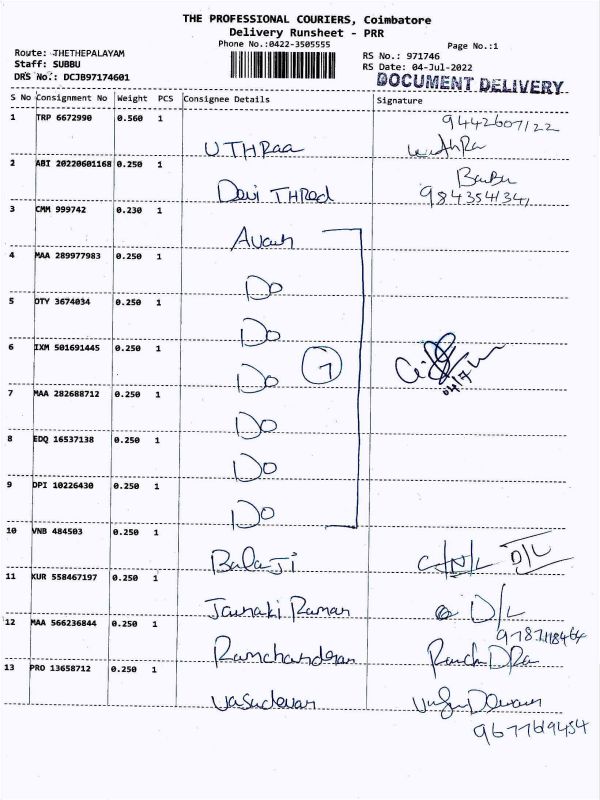 THE PROFESSIONAL COURIERS, Coimbatore
Delivery Runsheet - PRR
Phone No.:0422-3505555
Page No.:1
Route: THETHEPALAYAM
Staff: SUBBU
DRS No.: DCJB97174601
RS No.: 971746
RS Date: 04-Jul-2022
DOCUMENT DELIVERY
S No Consignment No Weight PCS Consignee Details Signature
1 TRP 6672990 0.560 1
9442607122
UTHRaa
2 ABI 20220601168 0.250 1
Devi THRed
Babu
984354134
3 CMM 999742 0.230 1
4 MAA 289977983 0.250 1
Do
5 OTY 3674034 0.250 1
Do
6 IXM 501691445 0.250 1
Do
7
04/7
7 MAA 282688712 0.250 1
Do
8 EDQ 16537138 0.250 1
Do
9 DPI 10226430 0.250 1
Do
10 VNB 484503 0.250 1
BalaJi
C/N/L D/L
11 KUR 558467197 0.250 1
Janaki Raman
D/L
12 MAA 566236844 0.250 1
Ramchanderan
13 PRO 13658712 0.250 1
Vasudevan
9677619454